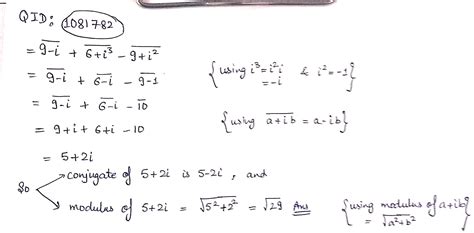 QID: 1081782
= 9̅-̅i̅ + 6̅+̅i̅³̅ - 9̅+̅i̅²̅
= 9̅-̅i̅ + 6̅-̅i̅ - 9̅-̅1̅ {using i³=i²i & i²=-1}
=-i
= 9̅-̅i̅ + 6̅-̅i̅ - 1̅0̅
= 9+i + 6+i - 10 {using a̅+̅i̅b̅ = a-ib}
= 5+2i
So → conjugate of 5+2i is 5-2i, and
→ modulus of 5+2i = √(5²+2²) = √29 Ans {using modulus of a+ib
= √(a²+b²)}